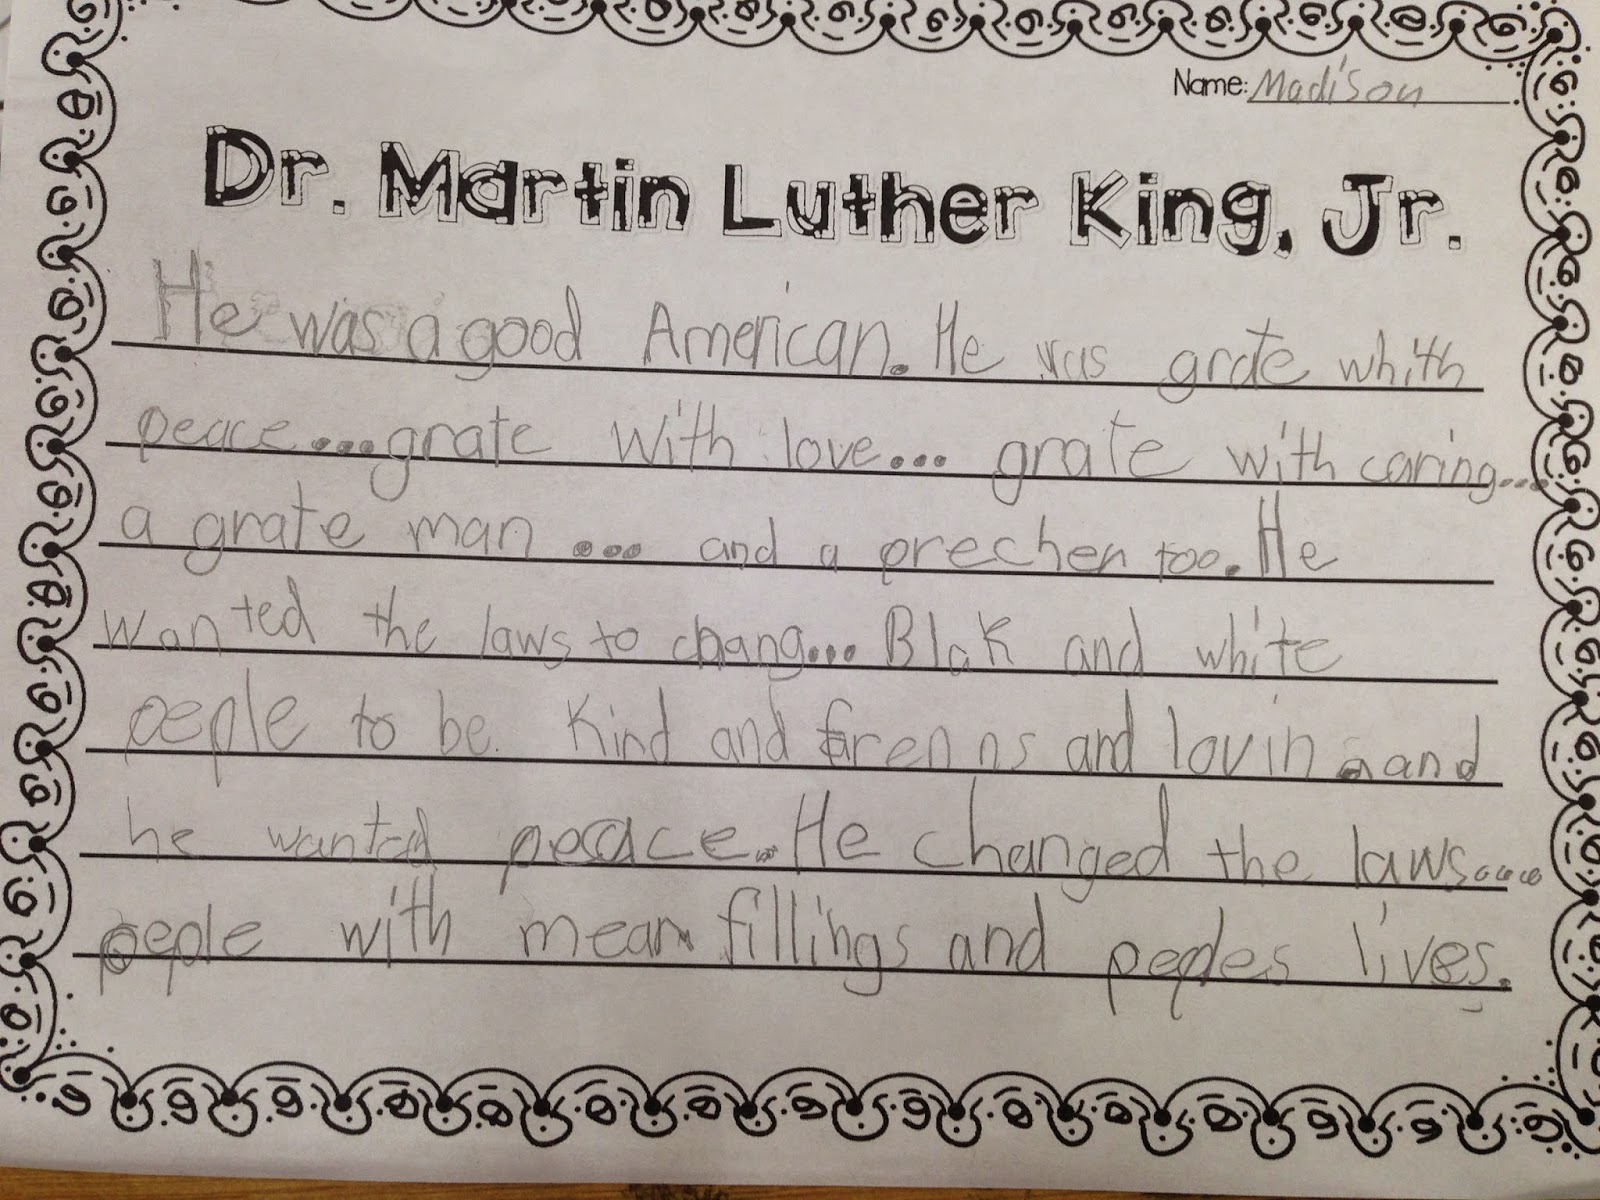 Name: Madison
Dr. Martin Luther King, Jr.
He was a good American. He was grate whith
peace... grate with love... grate with caring...
a grate man ... and a precher too. He
wanted the laws to chang... Blak and white
peple to be kind and frenns and lovin and
he wanted peace. He changed the laws....
peple with mean fillings and peples lives.